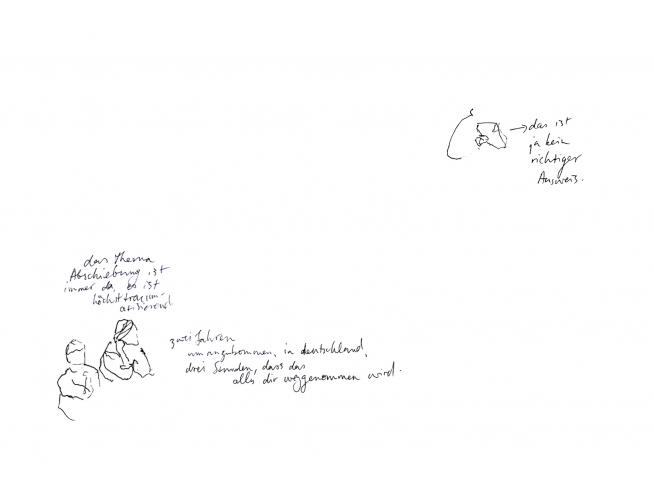 das ist
ja kein
richtiger
Ausweis.
das Thema
Abschiebung ist
immer da, es ist
höchst traum-
atisierend
zwei Jahren
um anzukommen, in deutschland,
drei Stunden, dass das
alles dir weggenommen wird.